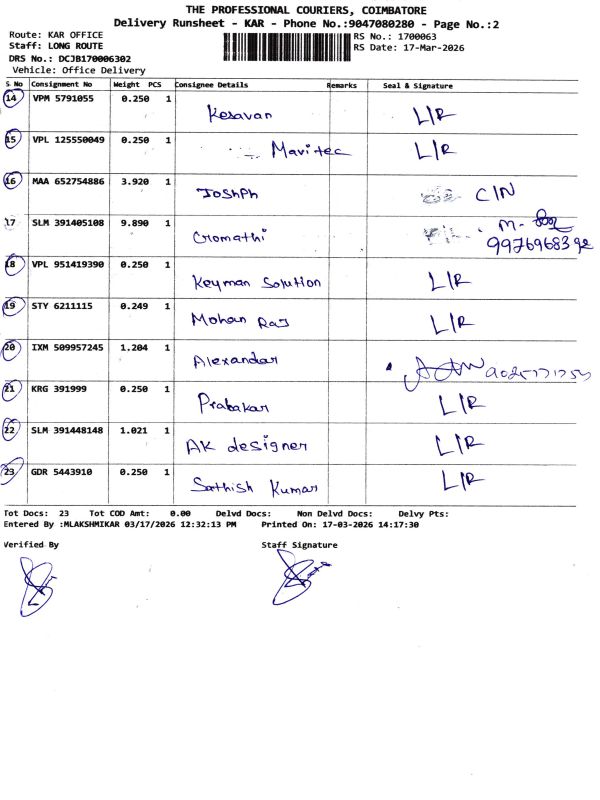 THE PROFESSIONAL COURIERS, COIMBATORE
Delivery Runsheet - KAR - Phone No.:9047080280 - Page No.:2
Route: KAR OFFICE RS No.: 1700063
Staff: LONG ROUTE RS Date: 17-Mar-2026
DRS No.: DCJB170006302
Vehicle: Office Delivery
S No Consignment No Weight PCS Consignee Details Remarks Seal & Signature
14 VPM 5791055 0.250 1 Kesavan L/R
15 VPL 125550049 0.250 1 Mavitec L/R
16 MAA 652754886 3.920 1 Joshph C/N
17 SLM 391405108 9.890 1 Cromathi M-
18 VPL 951419390 0.250 1 Keyman Solution L/R
19 STY 6211115 0.249 1 Mohan Raj L/R
20 IXM 509957245 1.204 1 Alexandar
21 KRG 391999 0.250 1 Prabakar L/R
22 SLM 391448148 1.021 1 AK designer L/R
23 GDR 5443910 0.250 1 Sathish Kumar L/R
Tot Docs: 23 Tot COD Amt: 0.00 Delvd Docs: Non Delvd Docs: Delvy Pts:
Entered By :MLAKSHMIKAR 03/17/2026 12:32:13 PM Printed On: 17-03-2026 14:17:30
Verified By Staff Signature